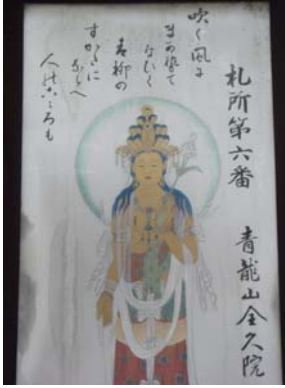 札所第六番
青龍山全久院
吹く風に
まかせて
なびく
青柳の
すがたに
ならへ
人のこゝろも